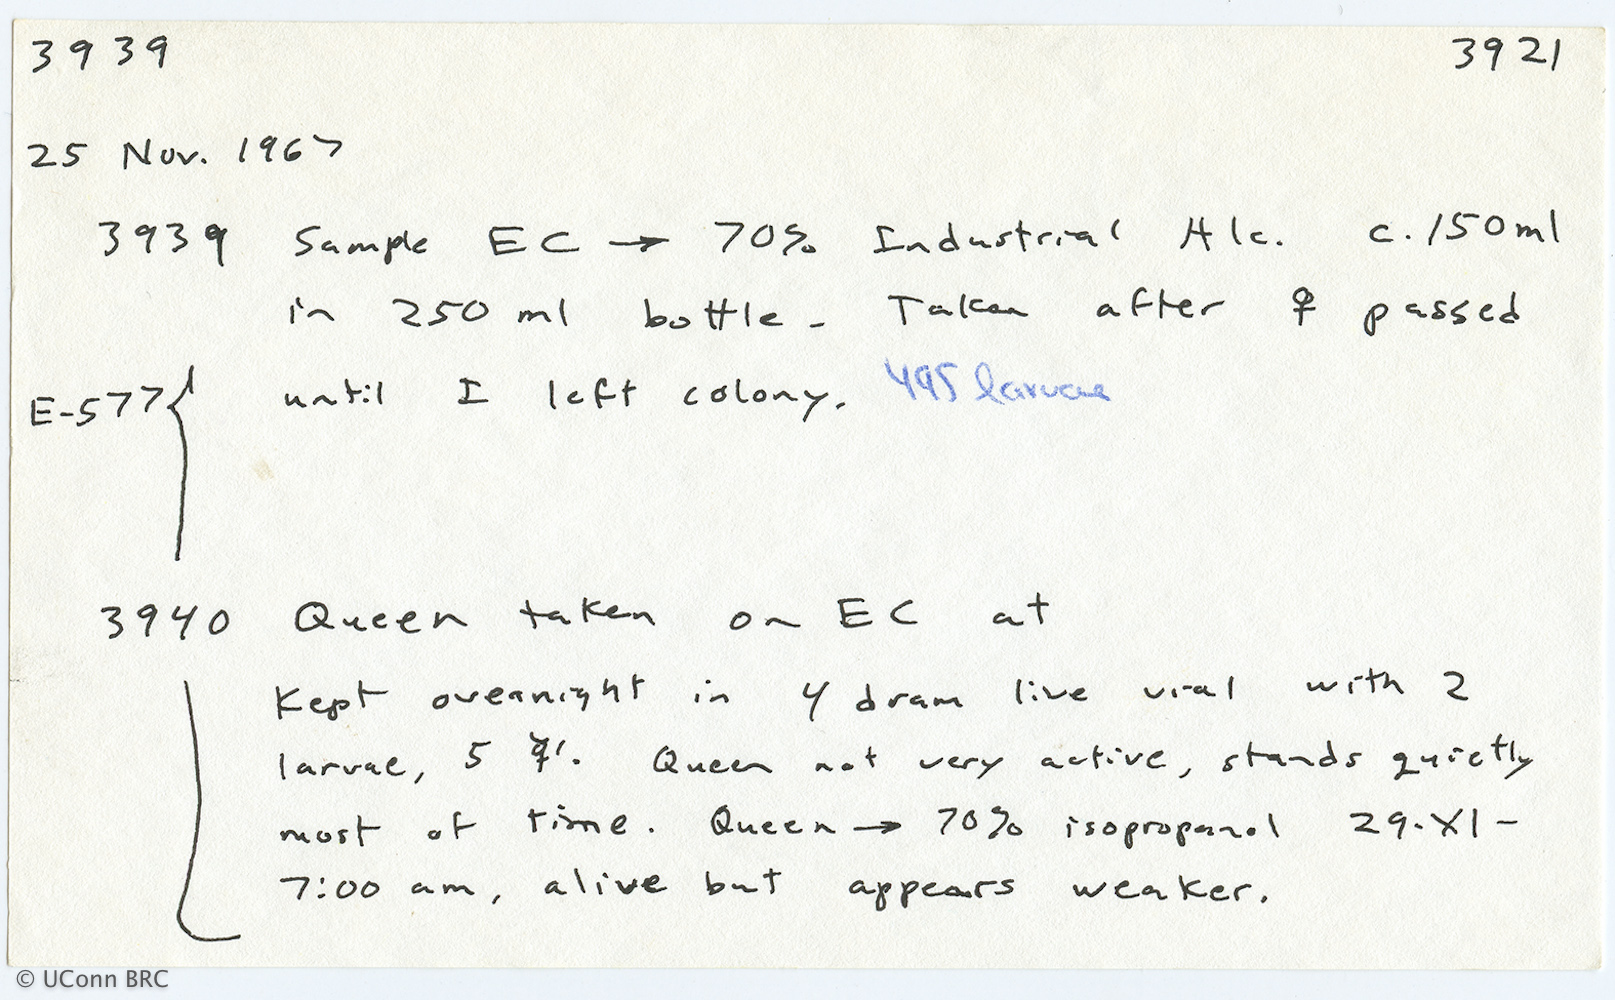 3939 3921
25 Nov. 1967
3939 Sample EC → 70% Industrial Alc. c. 150ml
in 250 ml bottle - Taken after ♀ passed
E-577 { until I left colony. 495 larvae
3940 Queen taken on EC at
Kept overnight in 4 dram live vial with 2
larvae, 5 . Queen not very active, stands quietly
most of time. Queen → 70% isopropanol 29-XI-
7:00 am, alive but appears weaker.
© UConn BRC